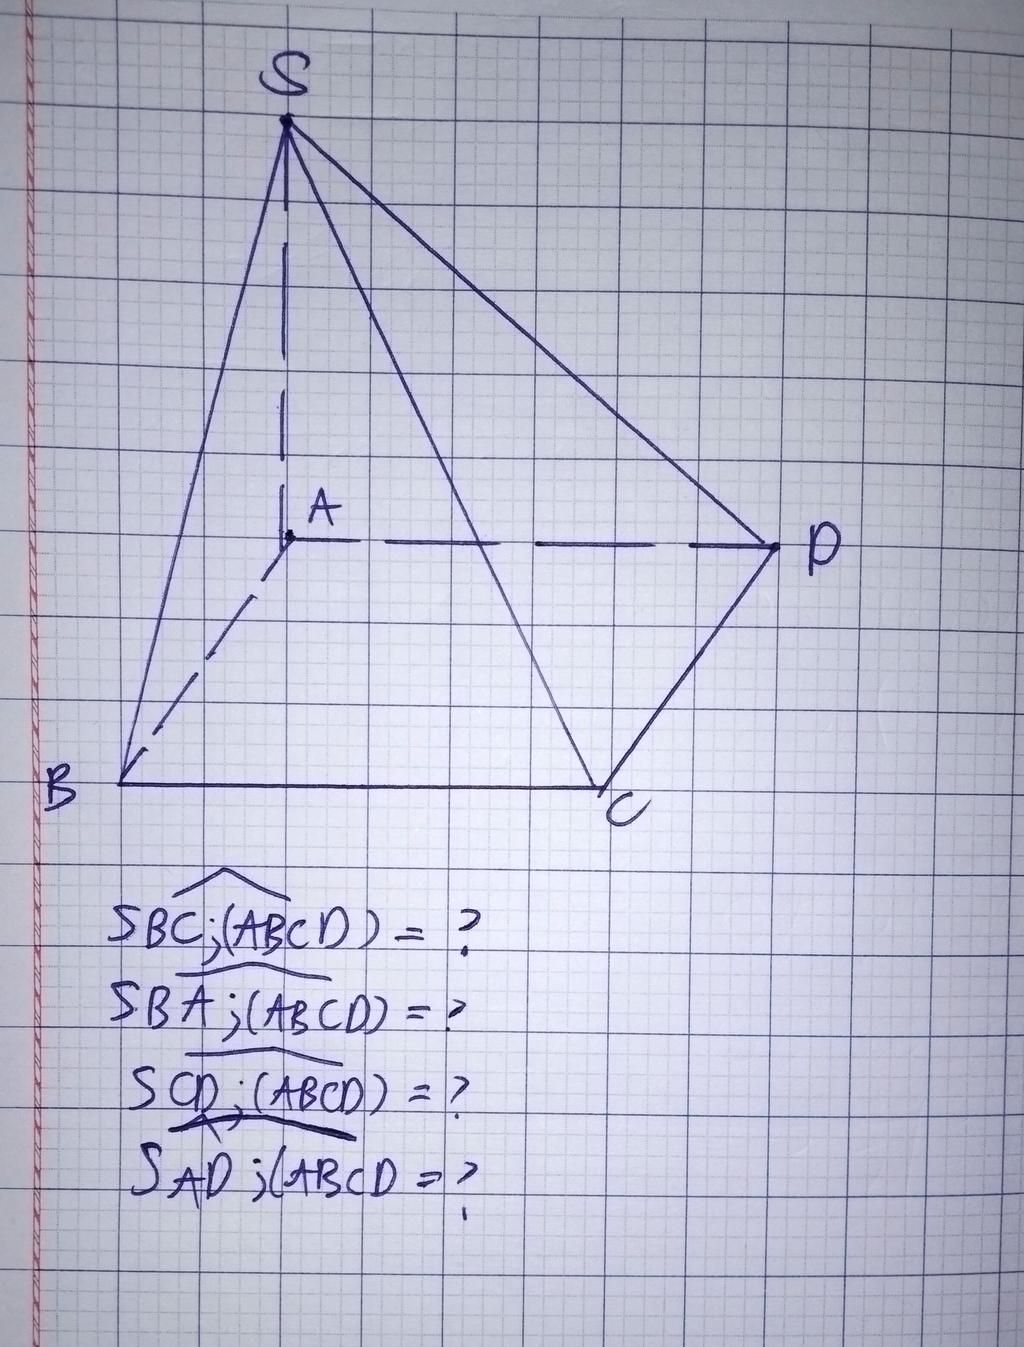 S
A
D
B
C
SBC;(ABCD) = ?
SBA;(ABCD) = ?
SCD;(ABCD) = ?
SAD;(ABCD = ?